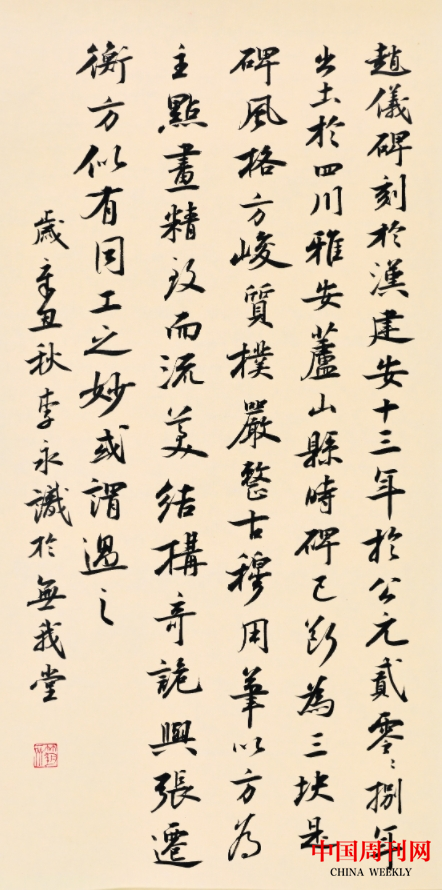 趙儀碑刻於漢建安十三年於公元貳零零捌年
出土於四川雅安蘆山縣時碑已斷為三块是
碑風格方峻質樸嚴整古穆用筆以方為
主點畫精致而流美結構奇詭與張遷
衡方似有同工之妙或謂過之
歲辛丑秋李永識於無我堂
中国周刊网
CHINA WEEKLY